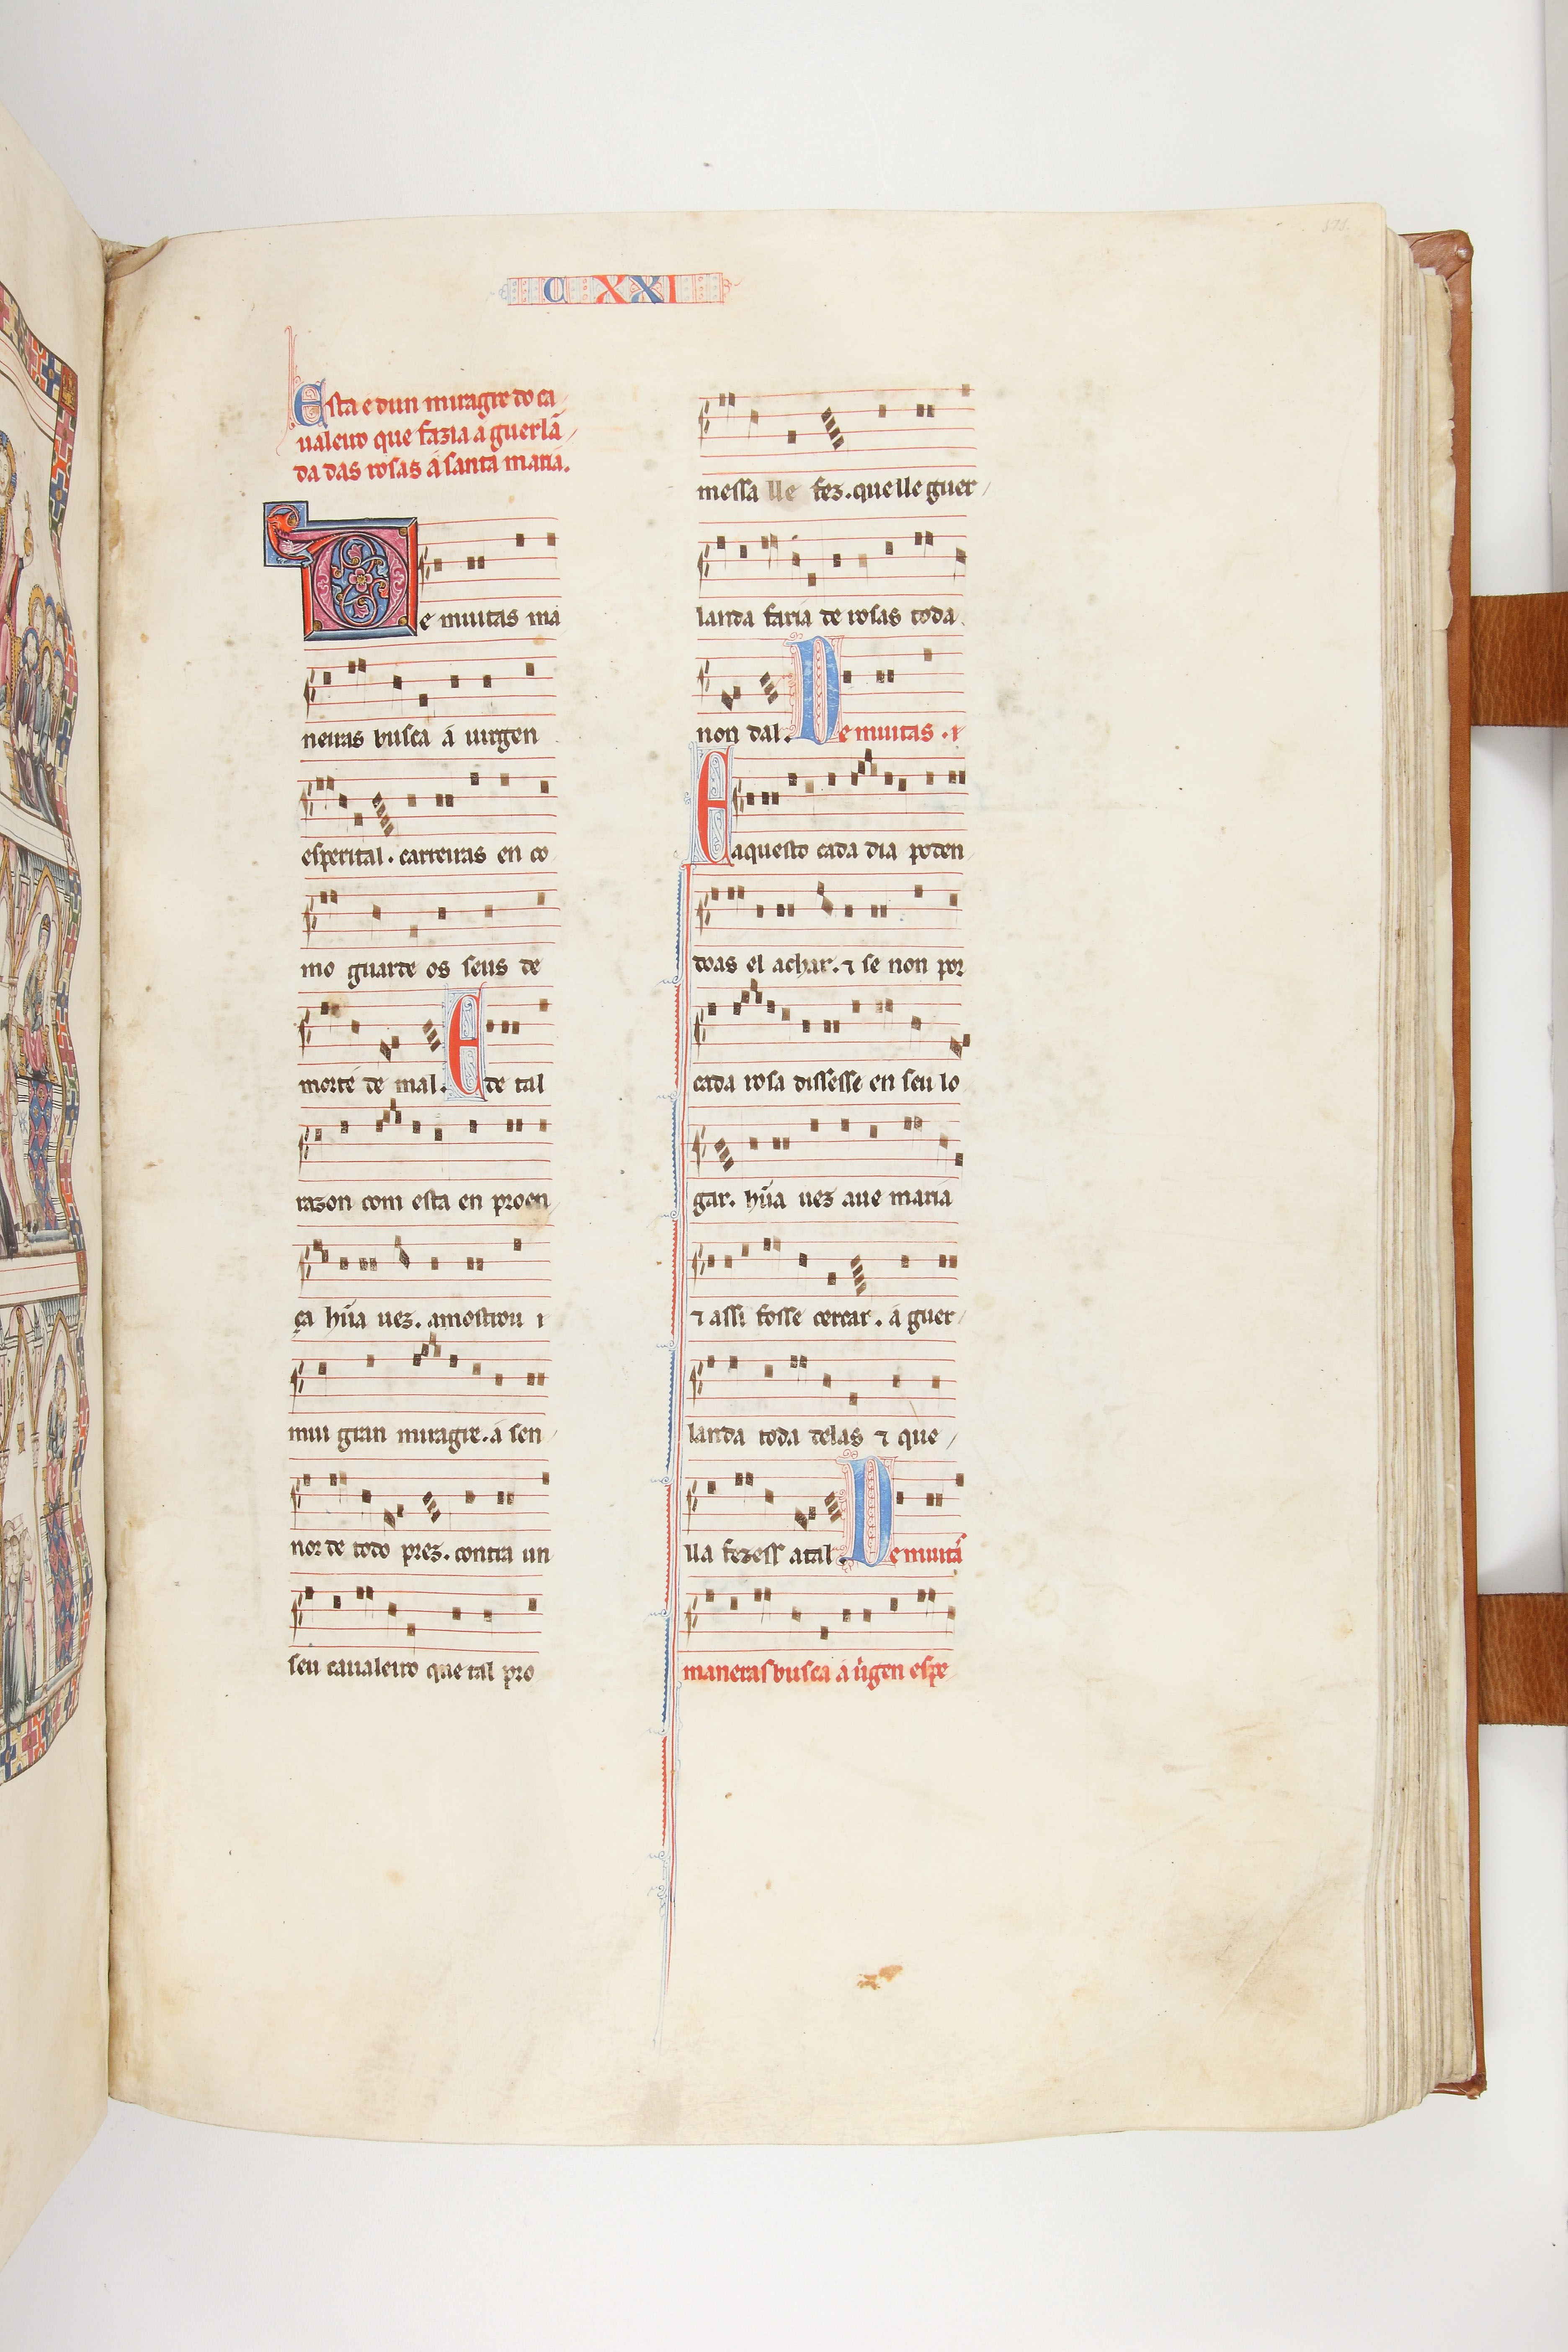 C XXI
Esta e dun miragre do ca
ualeiro que fazia a guerlã
da das rosas á santa maria.
De muitas ma
neiras busca á uirgen
esperital. carreiras en co
mo guarde os seus de
morte de mal. E de tal
razon com esta en proen
ça hũa uez. amostrou i
mui gran miragre. á sen
nor de todo prez. contra un
seu caualeiro que tal pro
messa lle fez. que lle guer
landa faria de rosas toda
non dal. De muitas. i
E aquesto cada dia poden
doas el achar. ⁊ se non por
cada rosa dissesse en seu lo
gar. hũa uez aue maria
⁊ assi fosse cercar. á guer
landa toda delas ⁊ que
lla fezess atal. De muitas
maneras busca á uigen espe